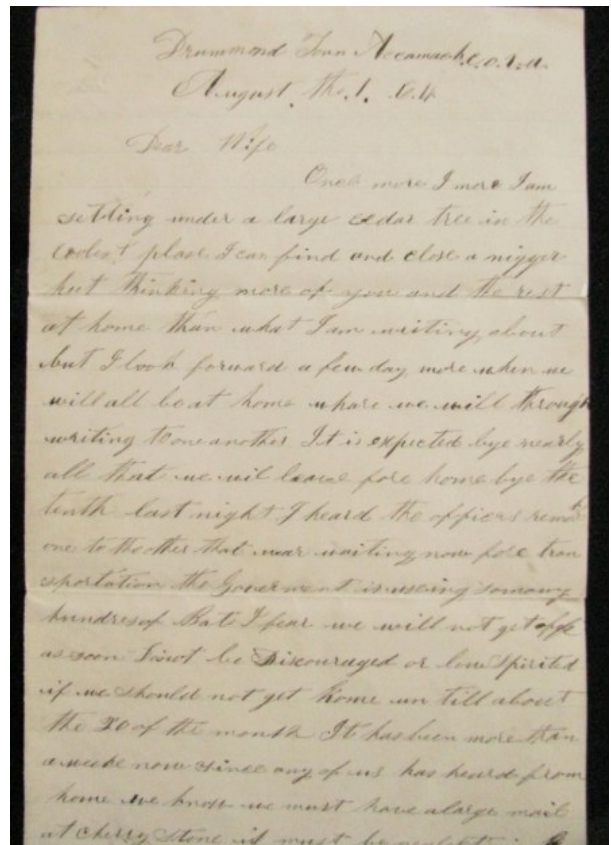 Drummond Town Accamack.Co.Va.
August. the.1. 64
Dear Wife
Once more I more I am
setting under a large cedar tree in the
coolest place I can find and close a nigger
hut thinking more of you and the rest
at home than what I am writing about
but I look forward a few day more when we
will all be at home whare we will through
writing to one another It is expected bye nearly
all that we wil leave fore home bye the
tenth last night I heard the officers remark
one to the other that war waiting now fore tran
sportation the Goverment is useing so many
hundres of Bats I fear we will not get off
as soon I not be Discouraged or low Spirited
if we should not get home un till about
the 20 of the month It has been more than
a weeke now since any of us has heard from
home we know we must have a large mail
at Cherry Stone it must be